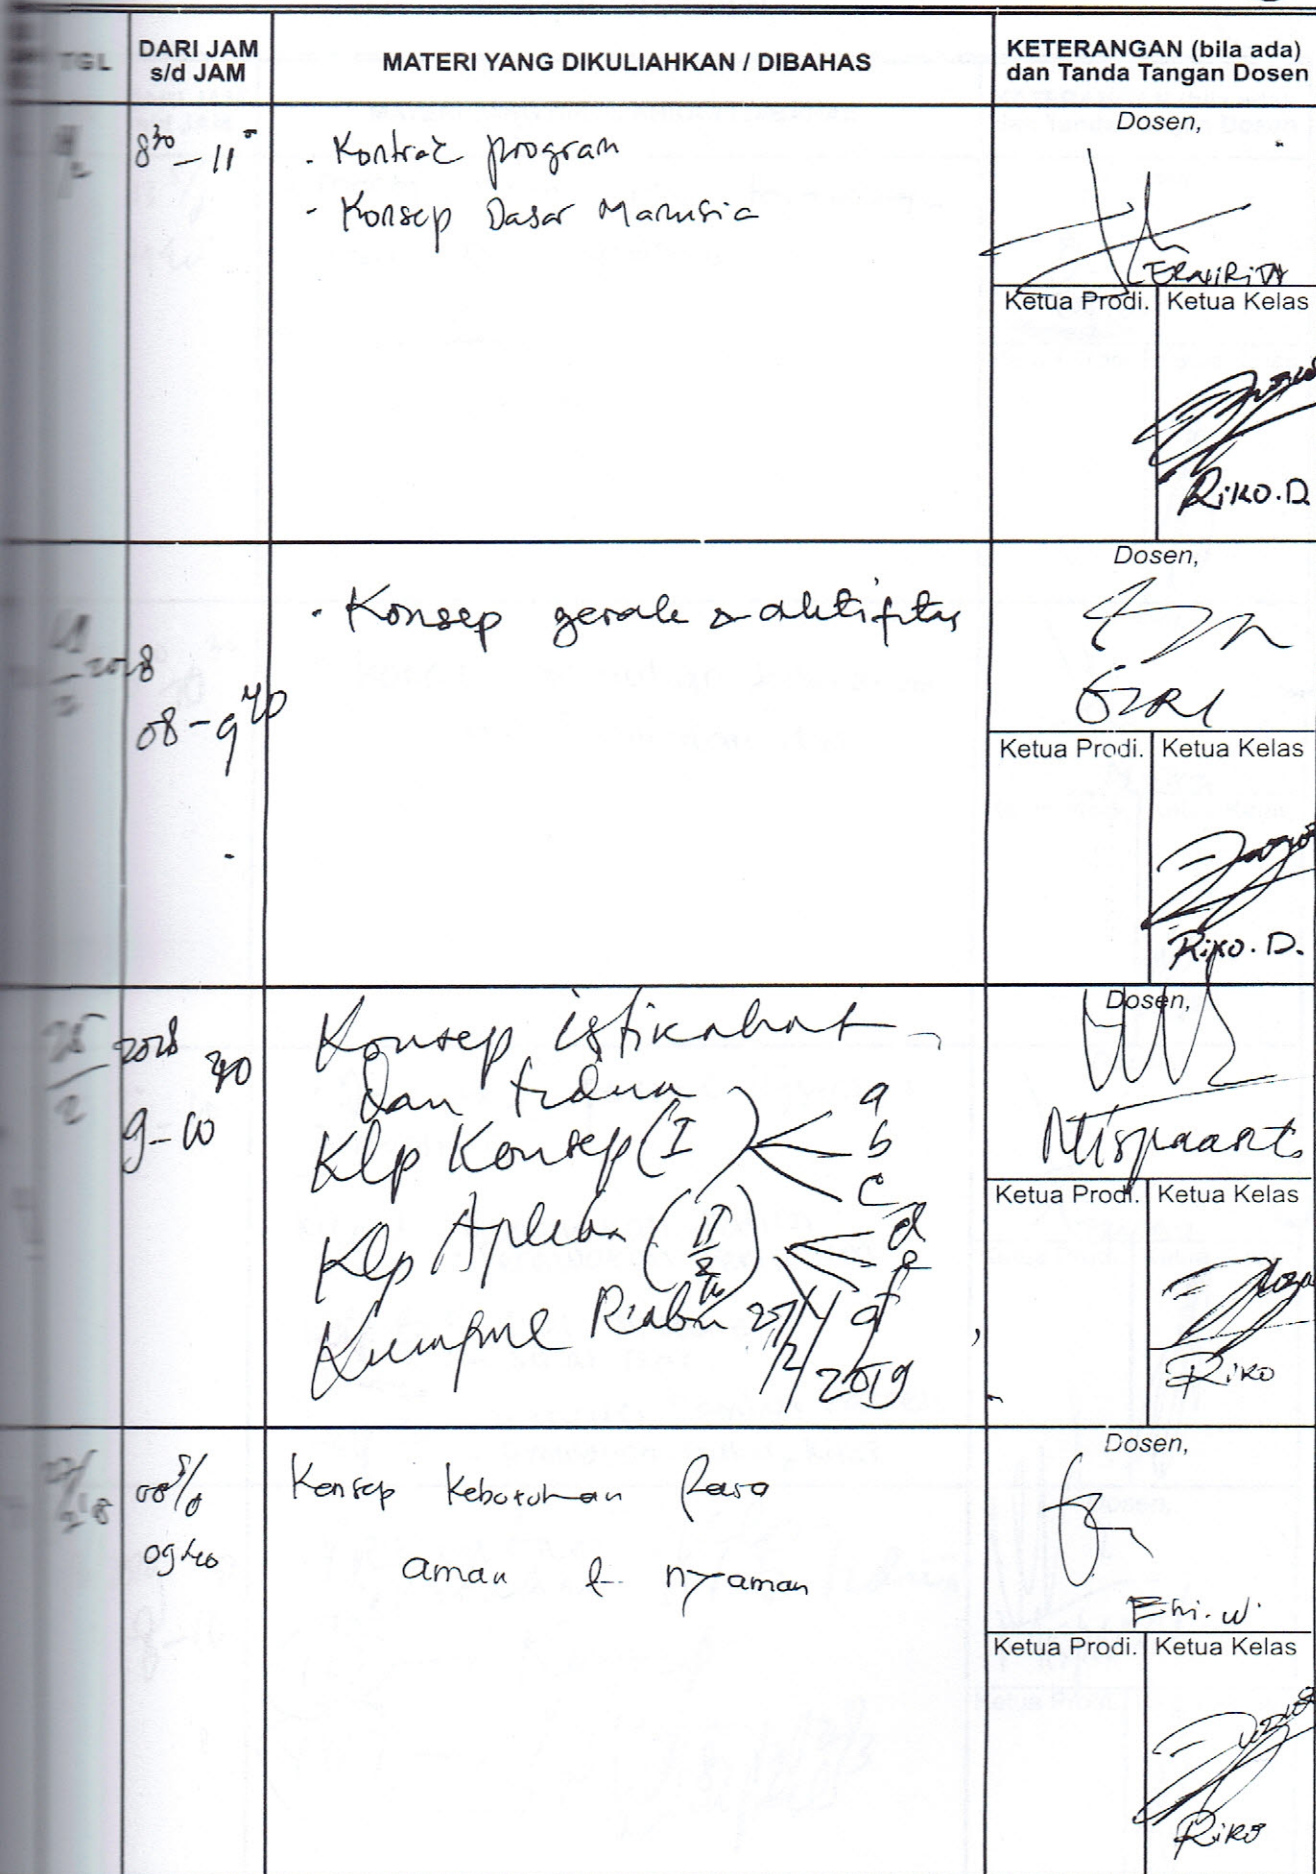 TGL
DARI JAM
s/d JAM
MATERI YANG DIKULIAHKAN / DIBAHAS
KETERANGAN (bila ada)
dan Tanda Tangan Dosen
8³⁰ - 11
- Kontrak program
- Konsep Dasar Manusia
Dosen,
Ketua Prodi.
Ketua Kelas
RiKO.D
2018
08 - 9⁴⁰
- Konsep gerak & aktifitas
Dosen,
EZRI
Ketua Prodi.
Ketua Kelas
Riko.D.
25/2 2018
9-10 40
Konsep istirahat
dan tidur
Klp Konsep (I) a
b
c
Klp (II) d
e
f
Kumpul Rabu 27/2 2019
Dosen,
Ketua Prodi.
Ketua Kelas
RiKO
09.40
Konsep Kebutuhan Rasa
aman & nyaman
Dosen,
Ketua Prodi.
Ketua Kelas
RiKO